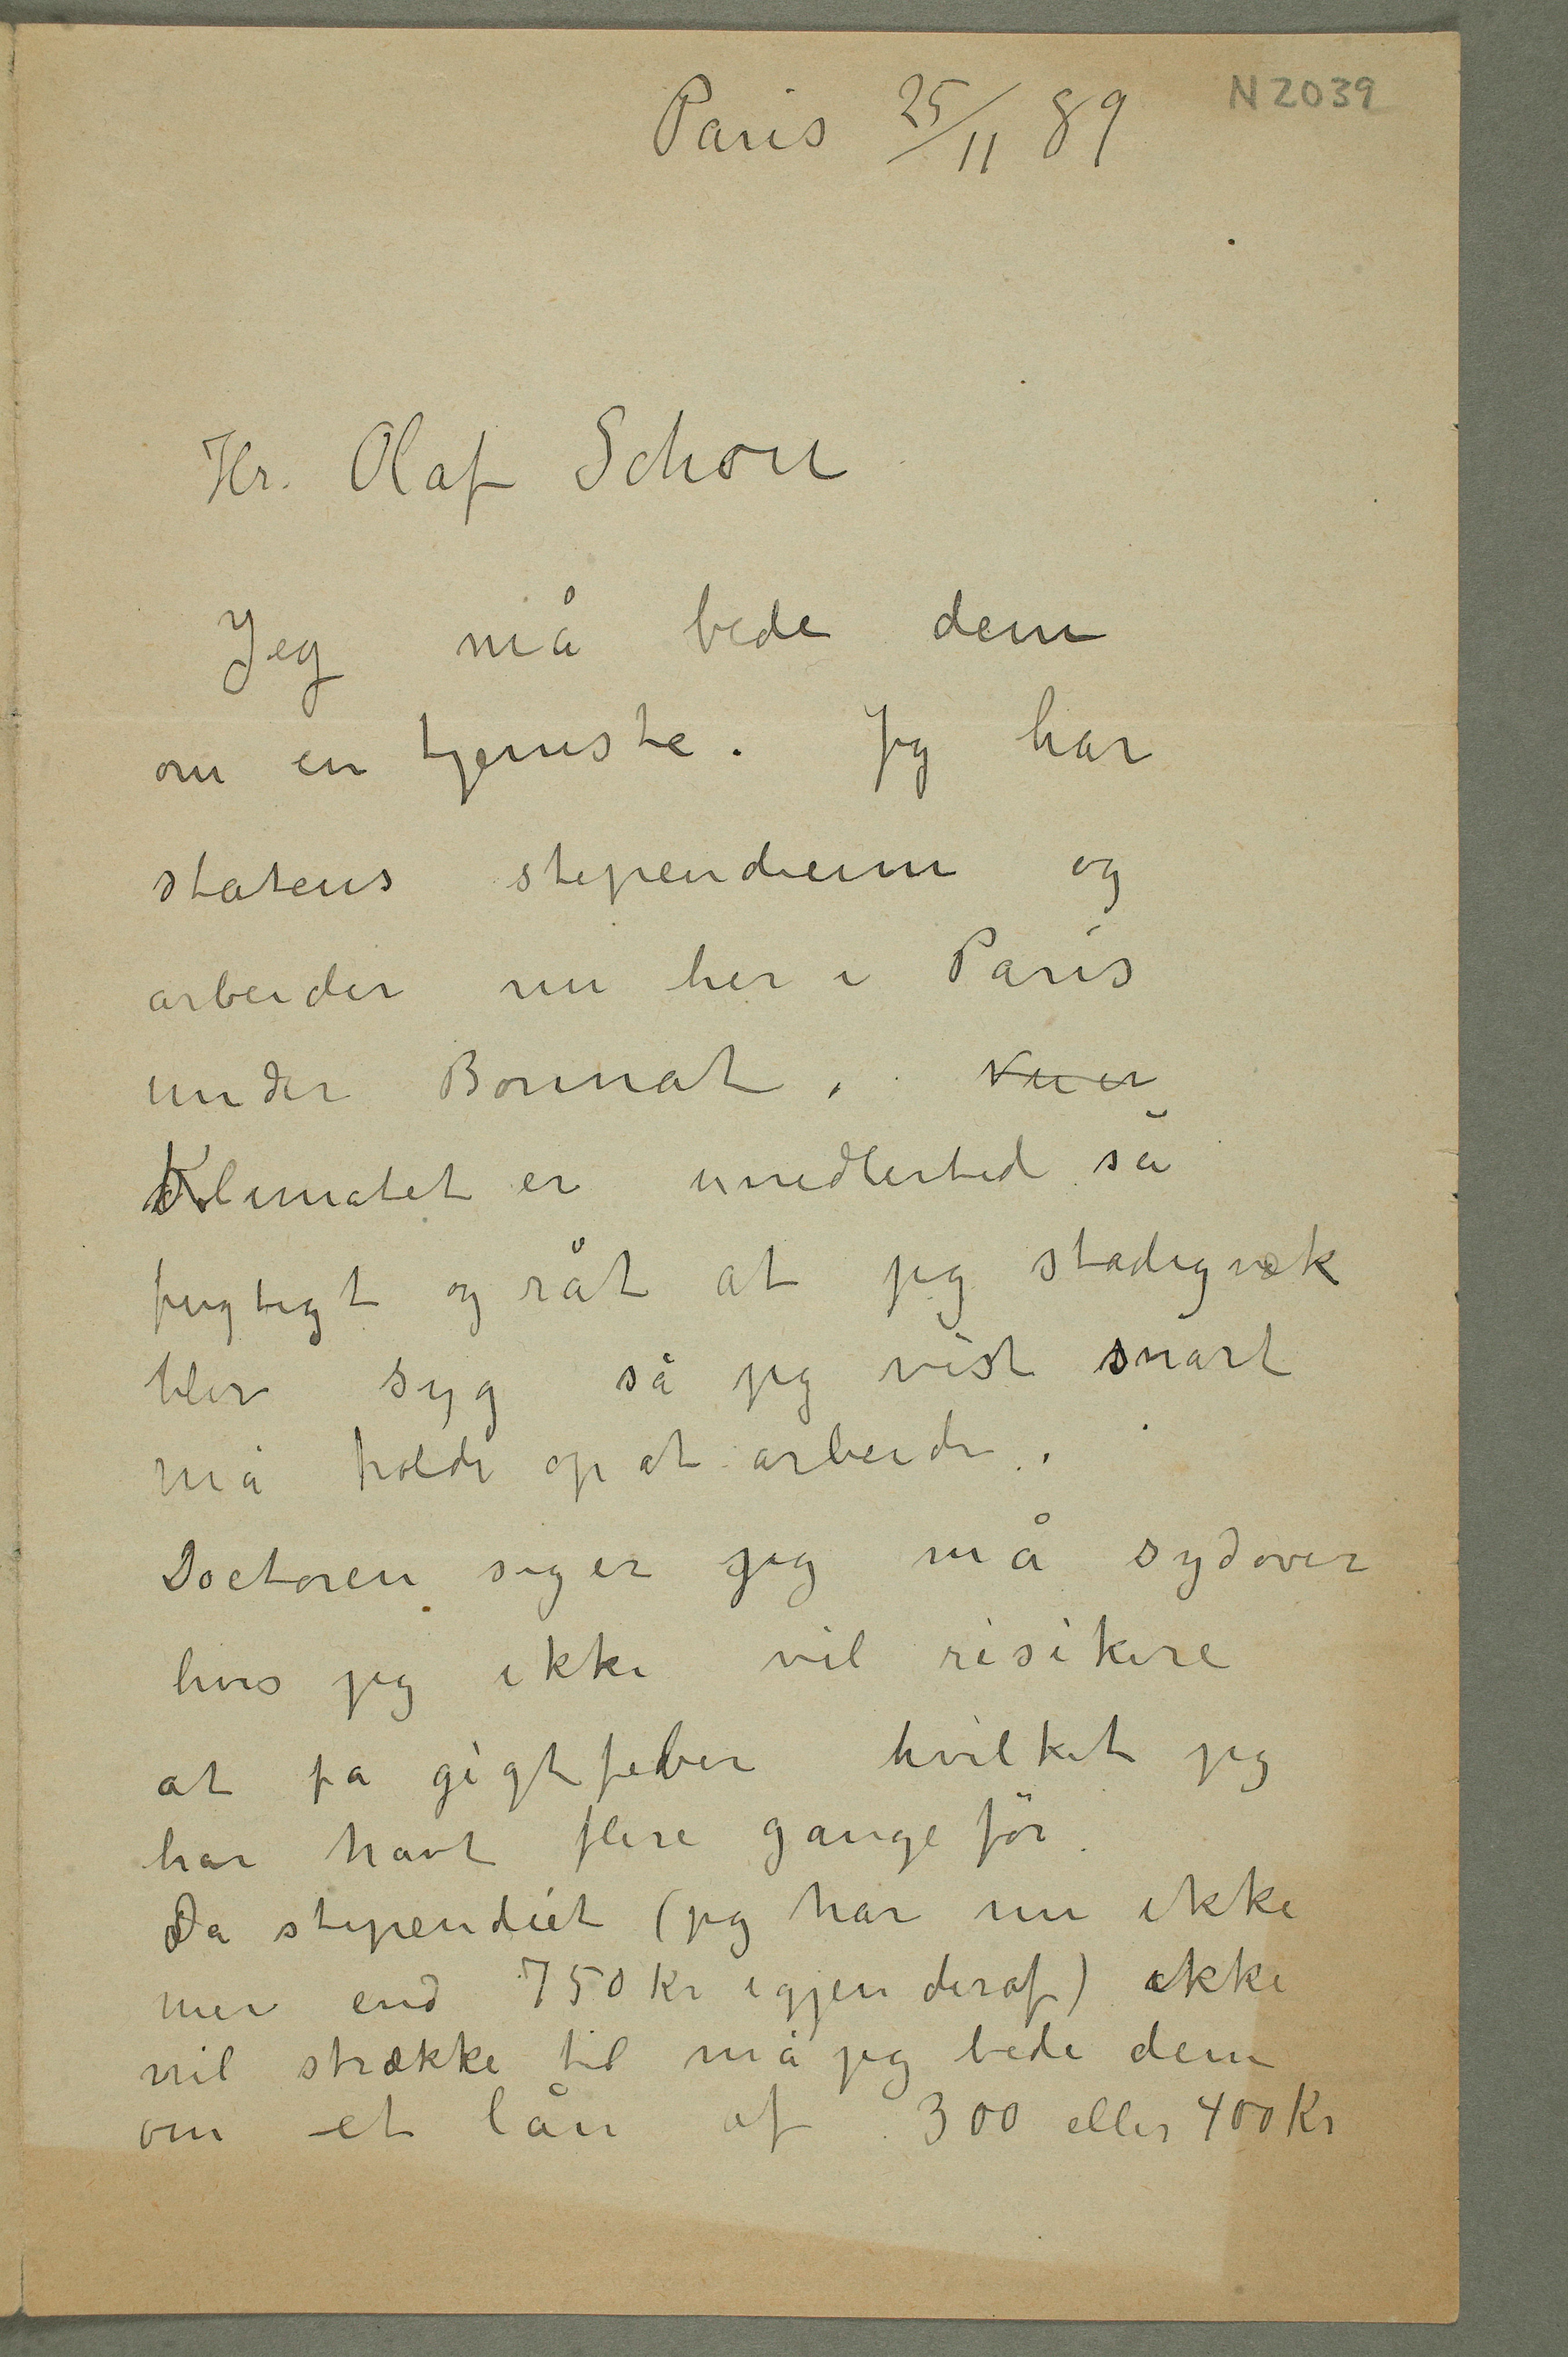 Paris 25/11 89
N 2039
Hr. Olaf Schou
Jeg må bede dem
om en tjeneste. Jeg har
statens stipendium og
arbeider nu her i Paris
under Bonnat. Nu er
Klimatet er imidlertid så
fugtigt og råt at jeg stadigvæk
blir syg så jeg vist snart
må holde op at arbeide.
Doctoren siger jeg må sydover
hvis jeg ikke vil risikere
at få gigtfeber hvilket jeg
har havt flere gange før.
Da stipendiet (jeg har nu ikke
mer end 750 Kr igjen deraf) ikke
vil strække til må jeg bede dem
om et lån af 300 eller 400 Kr